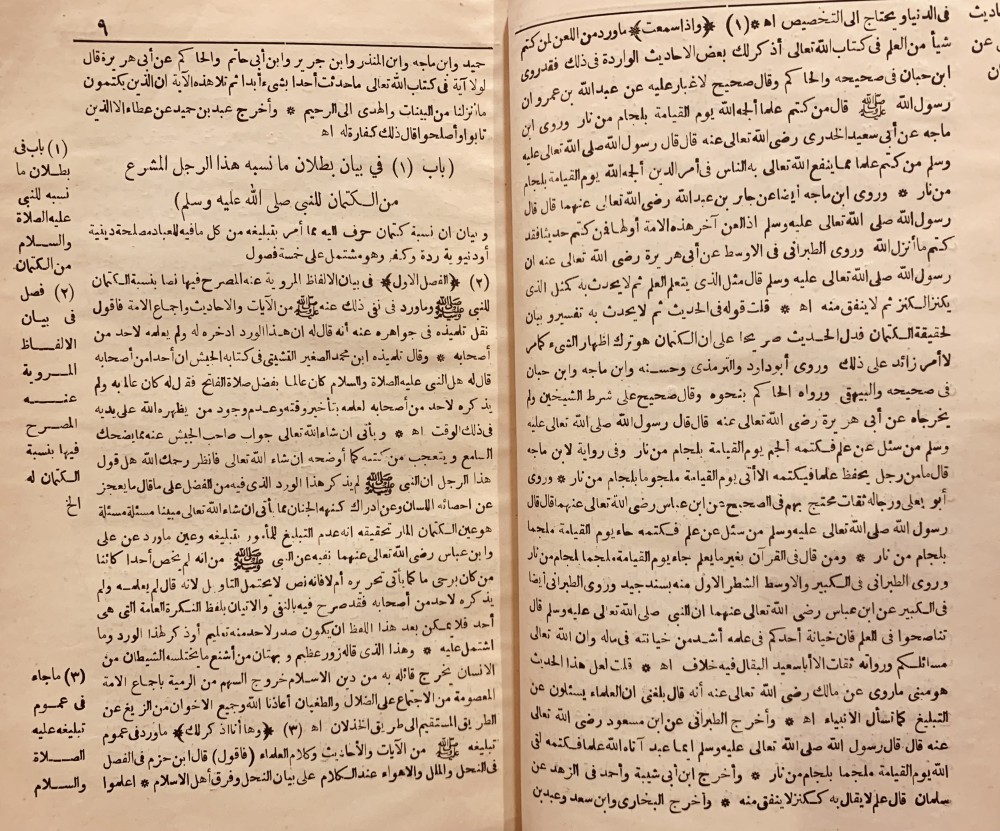 في الدنيا ويحتاج الى التخصيص اه * (١) ﴿واذا سمعت﴾ ماورد من اللعن لمن كتم
شيأ من العلم في كتاب الله تعالى أذكر لك بعض الاحاديث الواردة فى ذلك فقدروى
ابن حبان فى صحيحه والحاكم وقال صحيح لاغبار عليه عن عبد الله بن عمرو ان
رسول الله ﷺ قال من كتم علما ألجه الله يوم القيامة بلجام من نار وروى ابن
ماجه عن أبى سعيد الخدرى رضى الله تعالى عنه قال قال رسول الله صلى الله تعالى عليه
وسلم من كتم علما مما ينفع الله تعالى به الناس فى أمر الدين ألجه الله يوم القيامة بلجام
من نار * وروى ابن ماجه أيضا عن جابر بن عبد الله رضى الله تعالى عنهما قال قال
رسول الله صلى الله تعالى عليه وسلم اذا لعن آخر هذه الامة أولها فمن كتم حديثا فقد
كتم ما أنزل الله وروى الطبرانى فى الاوسط عن أبى هريرة رضى الله تعالى عنه ان
رسول الله صلى الله تعالى عليه وسلم قال مثل الذى يتعلم العلم ثم لا يحدث به كمثل الذى
يكنز الكنز ثم لا ينفق منه اه * قلت قوله فى الحديث ثم لا يحدث به تفسير وبيان
لحقيقة الكتمان فدل الحديث صريحا على ان الكتمان هو ترك اظهار الشىء كمامر
لا أمر زائد على ذلك وروى أبوداود والترمذى وحسنه وابن ماجه وابن حبان
فى صحيحه والبيهقى ورواه الحاكم بنحوه وقال صحيح على شرط الشيخين ولم
يخرجاه عن أبى هريرة رضى الله تعالى عنه قال قال رسول الله صلى الله تعالى عليه
وسلم من سئل عن علم فكتمه ألجم يوم القيامة بلجام من نار وفى رواية لابن ماجه
قال مامن رجل يحفظ علما فيكتمه الا أتى يوم القيامة ملجوما بلجام من نار * وروى
أبو يعلى ورجاله ثقات محتج بهم فى الصحيح عن ابن عباس رضى الله تعالى عنهما قال قال
رسول الله صلى الله تعالى عليه وسلم من سئل عن علم فكتمه جاء يوم القيامة ملجما
بلجام من نار * ومن قال فى القرآن بغير ما يعلم جاء يوم القيامة ملجما بلجام من نار
وروى الطبرانى فى الكبير والاوسط الشطر الاول منه بسند جيد وروى الطبرانى أيضا
فى الكبير عن ابن عباس رضى الله تعالى عنهما ان النبى صلى الله تعالى عليه وسلم قال
تناصحوا فى العلم فان خيانة أحدكم فى علمه أشد من خيانته فى ماله وان الله تعالى
مسائلكم ورواته ثقات الا أبا سعيد البقال فيه خلاف اه * قلت لعل هذا الحديث
هو مبنى ماروى عن مالك رضى الله تعالى عنه أنه قال بلغنى ان العلماء يسئلون عن
التبليغ كما تسأل الانبياء اه * وأخرج الطبرانى عن ابن مسعود رضى الله تعالى
عنه قال قال رسول الله صلى الله تعالى عليه وسلم ايما عبد آتاه الله علما فكتمه لقى
الله يوم القيامة ملجما بلجام من نار * وأخرج ابن أبى شيبة وأحمد فى الزهد عن
سلمان قال علم لا يقال به ككنز لا ينفق منه * وأخرج البخارى وابن سعد وعبد بن
٩
حميد وابن ماجه وابن المنذر وابن جرير وابن أبى حاتم والحاكم عن أبى هريرة قال
لولا آية فى كتاب الله تعالى ماحدثت أحدا بشىء أبدا ثم تلا هذه الآية ان الذين يكتمون
ما أنزلنا من البينات والهدى الى الرحيم * وأخرج عبد بن حميد عن عطاء الا الذين
تابوا وأصلحوا قال ذلك كفارة له اه
(باب (١) في بيان بطلان ما نسبه هذا الرجل المشرع
من الكتمان للنبي صلى الله عليه وسلم)
وبيان ان نسبة كتمان حرف اليه مما أمر بتبليغه من كل مافيه للعباد مصلحة دينية
أو دنيوية ردة وكفر وهو مشتمل على خمسة فصول
(٢) ﴿الفصل الاول﴾ فى بيان الالفاظ المروية عنه المصرح فيها نصا بنسبة الكتمان
للنبى ﷺ وماورد فى نفى ذلك عنه ﷺ من الآيات والاحاديث واجماع الامة فاقول
نقل تلميذه فى جواهره عنه أنه قال له ان هذا الورد ادخره له ولم يعلمه لاحد من
أصحابه * وقال تلميذه ابن محمد الصغير القشيتى فى كتابه الجيش ان أحدا من أصحابه
قال له هل النبى عليه الصلاة والسلام كان عالما بفضل صلاة الفاتح فقال له كان عالما به ولم
يذكره لاحد من أصحابه لعلمه بتأخير وقته وعدم وجود من يظهره الله على يديه
فى ذلك الوقت اه * ويأتى ان شاء الله تعالى جواب صاحب الجيش عنه مما يضحك
السامع ويتعجب من كتمه كما أوضحه ان شاء الله تعالى فانظر رحمك الله هل قول
هذا الرجل ان النبى ﷺ لم يذكر هذا الورد الذى فيه من الفضل على ماقال مايعجز
عن احصائه اللسان وعن ادراك كنهه الجنان مما يأتى ان شاء الله تعالى مبينا مسئلة مسئلة
هو عين الكتمان المار تحقيقه انه عدم التبليغ للمأمور بتبليغه وعين ماورد عن على
وابن عباس رضى الله تعالى عنهما نفيه عن النبى ﷺ من انه لم يخص أحدا كائنا
من كان برحى ما كما يأتى تحريره أم لا فانه نص لا يحتمل التاويل لانه قال لم يعلمه ولم
يذكره لاحد من أصحابه فقد صرح فيه بالنفى والاتيان بلفظ النكرة العامة التى هى
أحد فلا يمكن بعد هذا اللفظ ان يكون صدر لاحد منه تعليم أو ذكر لهذا الورد وما
اشتمل عليه * وهذا الذى قاله زور عظيم وبهتان من أشنع ما يختلسه الشيطان من
الانسان يخرج قائله به من دين الاسلام خروج السهم من الرمية باجماع الامة
المعصومة من الاجتماع على الضلال والطغيان أعاذنا الله وجميع الاخوان من الزيغ عن
الطريق المستقيم الى طريق الخذلان اه (٣) ﴿وها أنا اذكر لك﴾ ماورد فى عموم
تبليغه ﷺ من الآيات والأحاديث وكلام العلماء (فاقول) قال ابن حزم فى الفصل
فى النحل والملل والاهواء عند الكلام على بيان النحل وفرق أهل الاسلام * اعلموا
(١) باب فى
بطلان ما
نسبه للنبى
عليه الصلاة
والسلام
من الكتمان
(٢) فصل
فى بيان
الالفاظ
المروية
عنه
المصرح
فيها بنسبة
الكتمان له
الخ
(٣) ماجاء
فى عموم
تبليغه عليه
الصلاة
والسلام